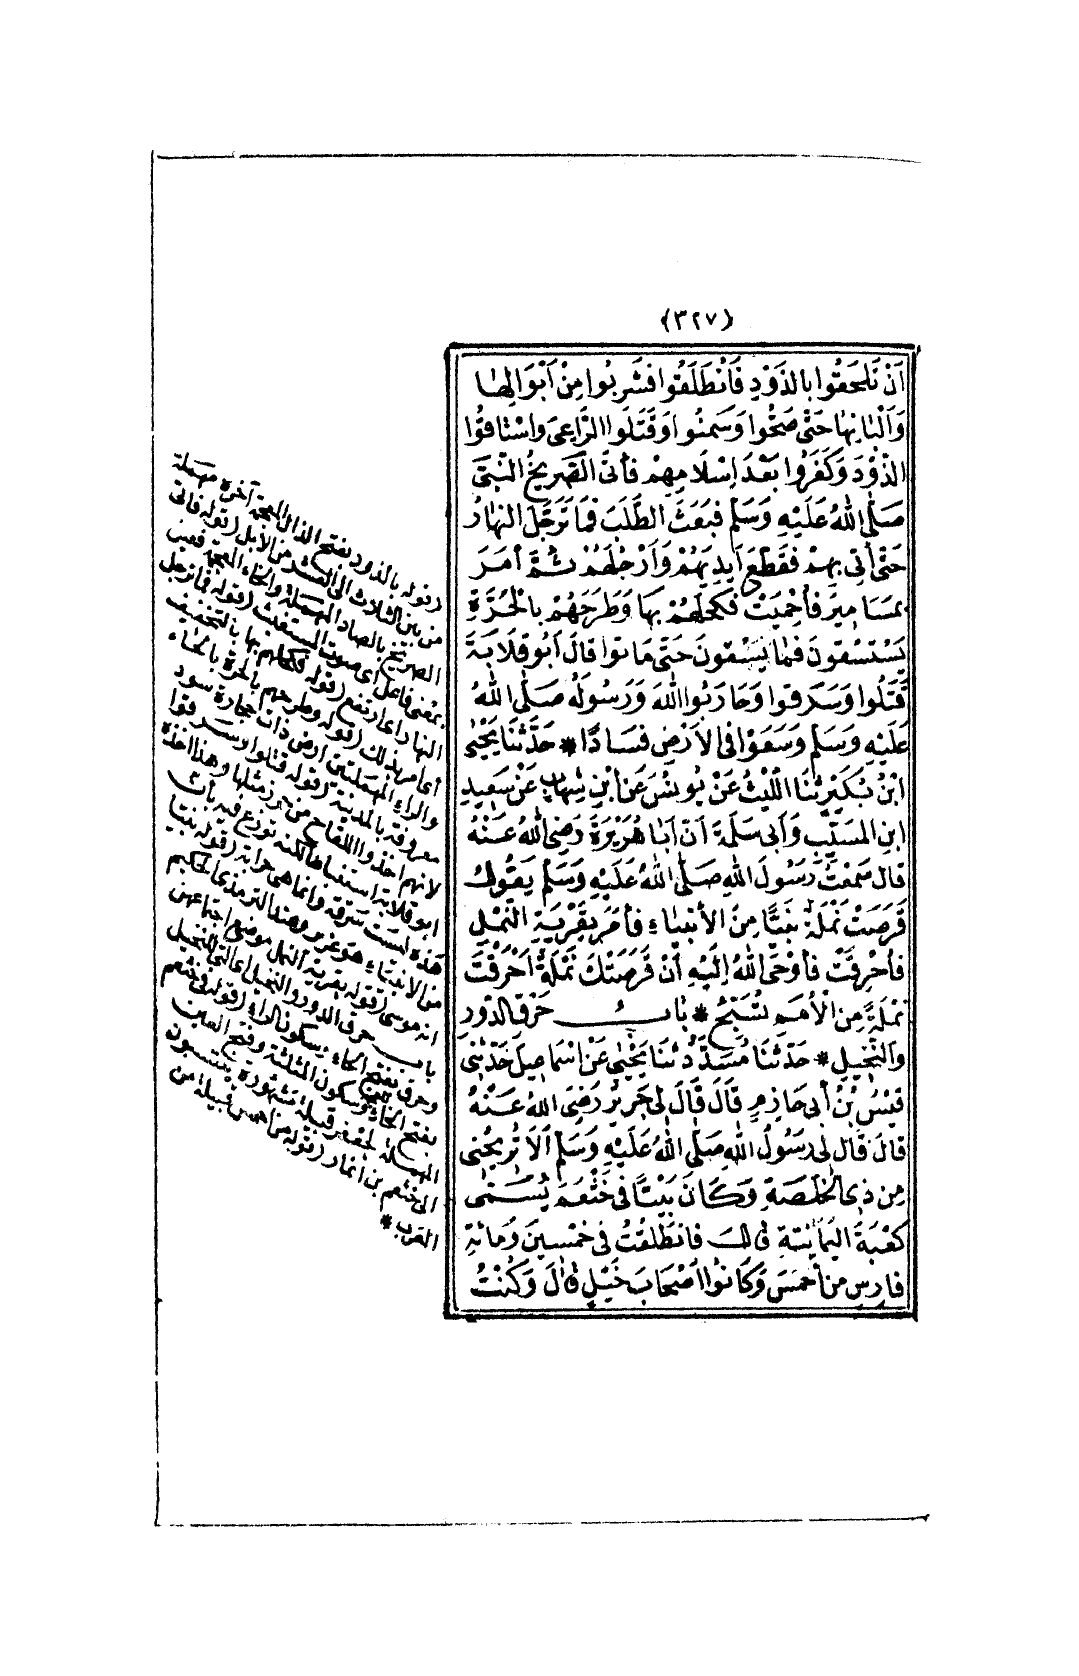 (٣٢٧)
أَنْ تَلْحَقُوا بِالذَّوْدِ فَانْطَلَقُوا فَشَرِبُوا مِنْ أَبْوَالِهَا
وَأَلْبَانِهَا حَتَّى صَحُّوا وَسَمِنُوا وَقَتَلُوا الرَّاعِيَ وَاسْتَاقُوا
الذَّوْدَ وَكَفَرُوا بَعْدَ إِسْلَامِهِمْ فَأَتَى الصَّرِيخُ النَّبِيَّ
صَلَّى اللهُ عَلَيْهِ وَسَلَّم فَبَعَثَ الطَّلَبَ فَمَا تَرَجَّلَ النَّهَارُ
حَتَّى أُتِيَ بِهِمْ فَقَطَّعَ أَيْدِيَهُمْ وَأَرْجُلَهُمْ ثُمَّ أَمَرَ
بِمَسَامِيرَ فَأُحْمِيَتْ فَكَحَلَهُمْ بِهَا وَطَرَحَهُمْ بِالْحَرَّةِ
يَسْتَسْقُونَ فَمَا يُسْقَوْنَ حَتَّى مَاتُوا قَالَ أَبُو قِلَابَةَ
قَتَلُوا وَسَرَقُوا وَحَارَبُوا اللهَ وَرَسُولَهُ صَلَّى اللهُ
عَلَيْهِ وَسَلَّم وَسَعَوْا فِي الْأَرْضِ فَسَادًا * حَدَّثَنَا يَحْيَى
ابْنُ بُكَيْرٍ ثَنَا اللَّيْثُ عَنْ يُونُسَ عَنِ ابْنِ شِهَابٍ عَنْ سَعِيدِ
ابْنِ الْمُسَيِّبِ وَأَبِي سَلَمَةَ أَنَّ أَبَا هُرَيْرَةَ رَضِيَ اللهُ عَنْهُ
قَالَ سَمِعْتُ رَسُولَ اللهِ صَلَّى اللهُ عَلَيْهِ وَسَلَّم يَقُولُ
قَرَصَتْ نَمْلَةٌ نَبِيًّا مِنَ الْأَنْبِيَاءِ فَأَمَرَ بِقَرْيَةِ النَّمْلِ
فَأُحْرِقَتْ فَأَوْحَى اللهُ إِلَيْهِ أَنْ قَرَصَتْكَ نَمْلَةٌ أَحْرَقْتَ
نَمْلَةً مِنَ الْأُمَمِ تُسَبِّحُ * بَابُ حَرْقِ الدُّورِ
وَالنَّخِيلِ * حَدَّثَنَا مُسَدَّدٌ ثَنَا يَحْيَى عَنْ إِسْمَاعِيلَ حَدَّثَنِي
قَيْسُ بْنُ أَبِي حَازِمٍ قَالَ قَالَ لِي جَرِيرٌ رَضِيَ اللهُ عَنْهُ
قَالَ قَالَ لِي رَسُولُ اللهِ صَلَّى اللهُ عَلَيْهِ وَسَلَّم أَلَا تُرِيحُنِي
مِنْ ذِي الْخَلَصَةِ وَكَانَ بَيْتًا فِي خَثْعَمَ يُسَمَّى
كَعْبَةَ الْيَمَانِيَةِ قَالَ فَانْطَلَقْتُ فِي خَمْسِينَ وَمِائَةِ
فَارِسٍ مِنْ أَحْمَسَ وَكَانُوا أَصْحَابَ خَيْلٍ قَالَ وَكُنْتُ
(قوله بالذود) بفتح الذال المعجمة آخره مهملة
من بين الثلاث الى العشر من الابل (قوله فاتى
الصريخ) بالصاد المهملة والخاء المعجمة فعيل
بمعنى فاعل اى صوت المستغيث (قوله فما ترجل
النهار) اى ارتفع (قوله فكحلهم بها) بالتخفيف
اى امر بذلك (قوله وطرحهم بالحرة) بالحاء
والراء المهملتين ارض ذات حجارة سود
معروفة بالمدينة (قوله قتلوا وسرقوا)
لانهم اخذوا اللقاح من حرز مثلها وهذا اخذه
ابو قلابة استنباطا لكنه نوزع فيه بأن
هذه ليست سرقة وانما هى حرابة (قوله نبيا
من الانبياء) هو عزير وعند الترمذى الحكيم
انه موسى (قوله بقرية النمل) موضع اجتماعهن
باب حرق الدور والنخيل اى التى للنخيل
وحرق بفتح الحاء وسكون الراء (قوله فى خثعم)
بفتح الخاء وسكون المثلثة وفتح العين
المهملة لجعفر قبيلة مشهورة ينتسبون
الى خثعم بن انمار (قوله من احمس) قبيلة من
العرب *